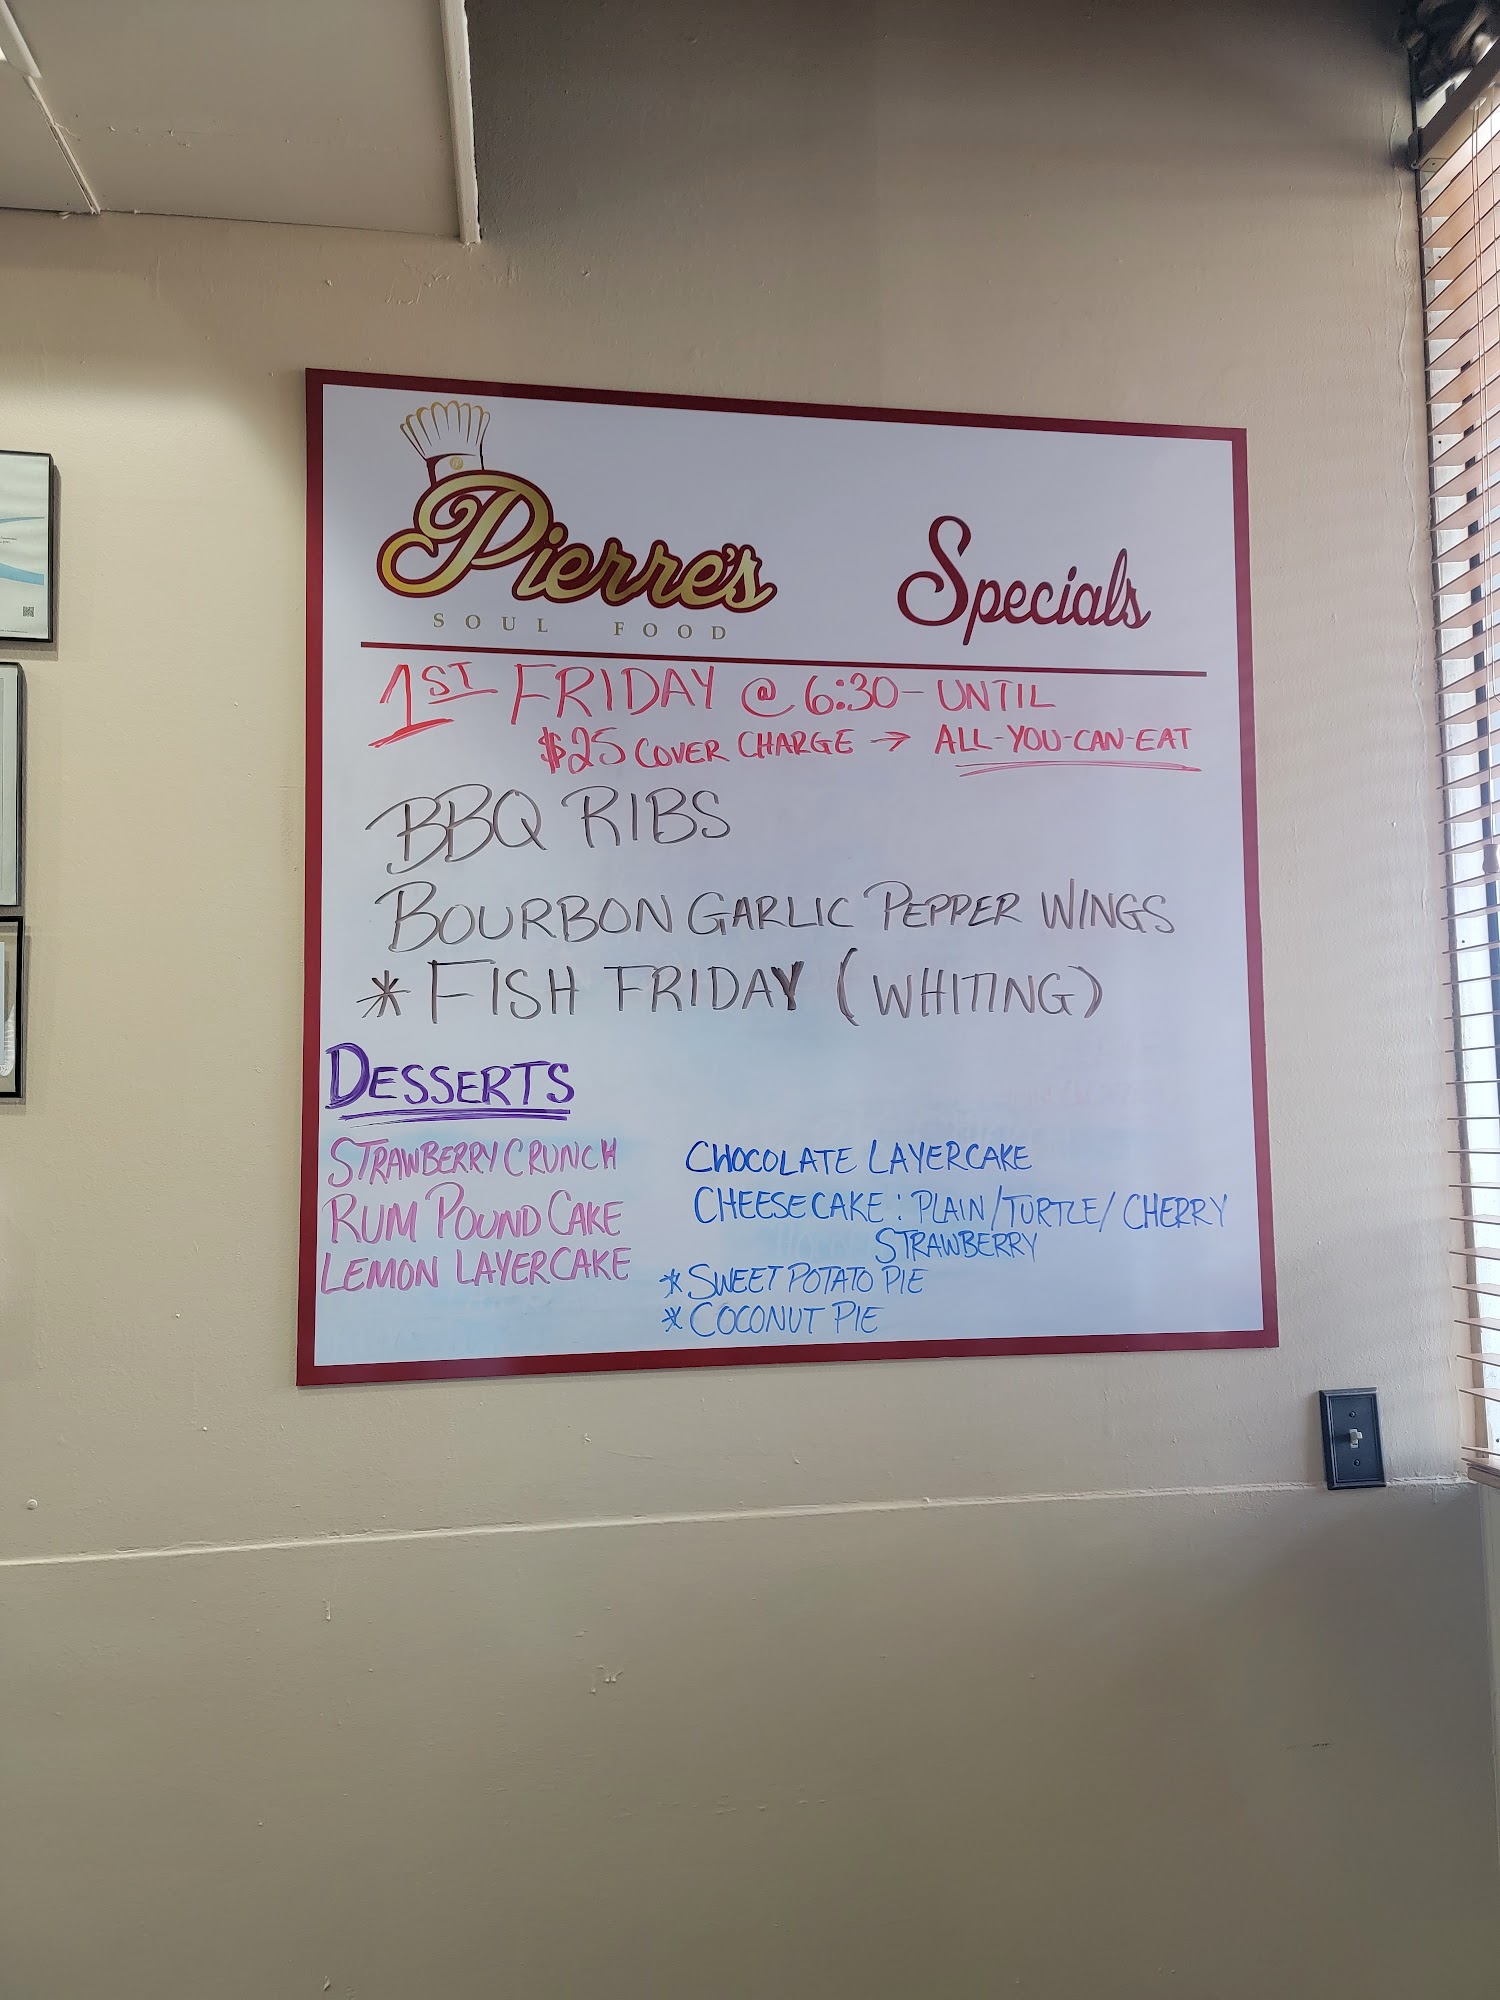 Pierre's
SOUL FOOD
Specials
1ST FRIDAY @ 6:30 - UNTIL
$25 COVER CHARGE → ALL-YOU-CAN-EAT
BBQ RIBS
BOURBON GARLIC PEPPER WINGS
* FISH FRIDAY (WHITING)
DESSERTS
STRAWBERRY CRUNCH
RUM POUND CAKE
LEMON LAYERCAKE
CHOCOLATE LAYERCAKE
CHEESECAKE: PLAIN/TURTLE/CHERRY
STRAWBERRY
* SWEET POTATO PIE
* COCONUT PIE